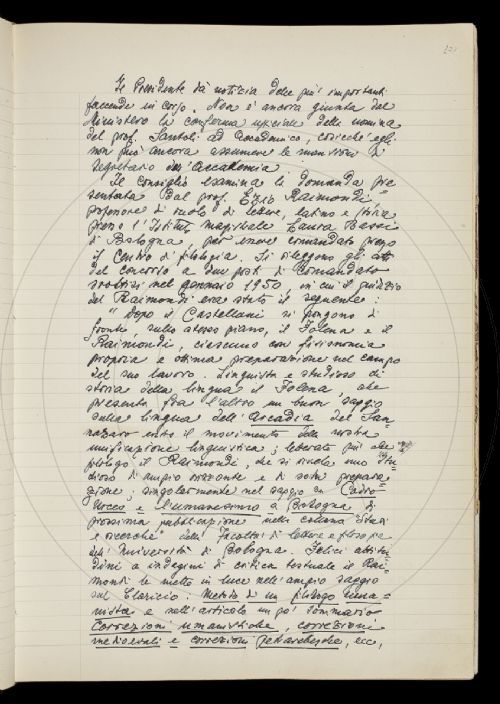 221
Il Presidente dà notizia delle più importanti
faccende in corso. Non è ancora giunta dal
Ministero la conferma ufficiale della nomina
del prof. Santoli ad Accademico, cosicché egli
non può ancora assumere le mansioni di
segretario dell'Accademia.
Il Consiglio esamina la domanda pre
sentata dal prof. Ezio Raimondi,
professore di ruolo di lettere, latino e storia
presso l'Istituto magistrale Laura Bassi
di Bologna, per essere comandato presso
il Centro di filologia. Si rileggono gli atti
del concorso a due posti di Comandato
svoltosi nel gennaio 1950, in cui il giudizio
del Raimondi era stato il seguente:
" dopo il Castellani si pongono di
fronte, sullo stesso piano, il Folena e il
Raimondi, ciascuno con fisionomia
propria e ottima preparazione nel campo
del suo lavoro. Linguista e studioso di
storia della lingua il Folena che
presenta fra l'altro un buon saggio
sulla lingua dell'Arcadia del San-
nazaro entro il movimento della nostra
unificazione linguistica; letterato più che
filologo il Raimondi, che si rivela uno stu-
dioso di ampio orizzonte e di soda prepara-
zione; singolarmente nel saggio su Codro
Urceo e l'umanesimo a Bologna, di
prossima pubblicazione nella collana "Studi
e ricerche" della Facoltà di lettere e filosofia
dell'Università di Bologna. Felici attitu-
dini a indagini di critica testuale il Rai-
mondi le mette in luce nell'ampio saggio
sul Claricio: Metodo di un filologo uma-
nista e nell'articolo un po' sommario
Correzioni umanistiche, correzioni
medioevali e correzioni petrarchesche, ecc,